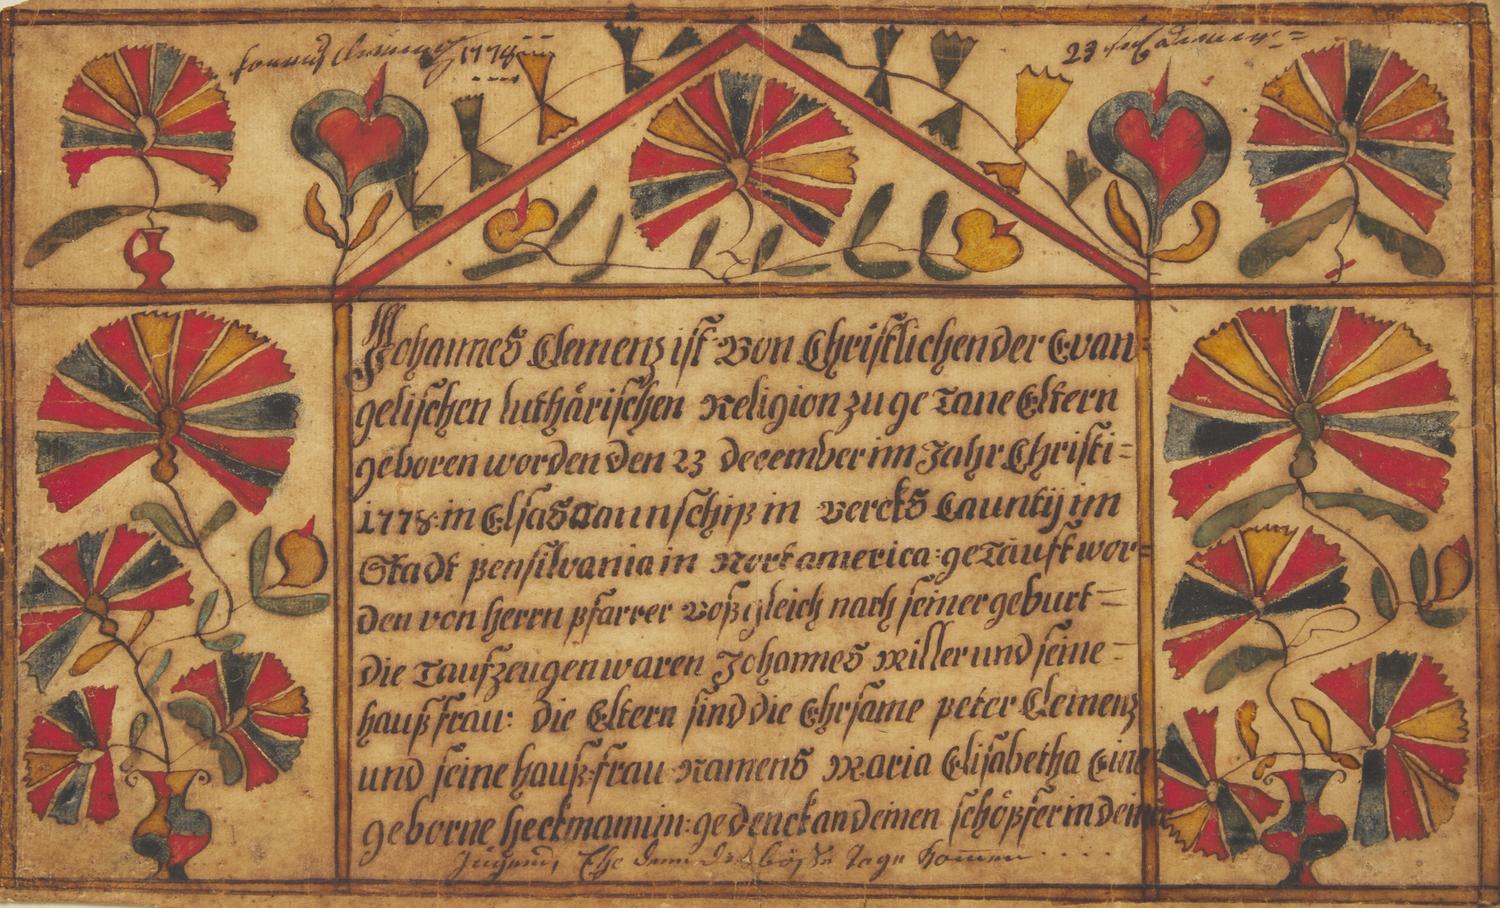 1778
23
Johannes Clemenz ist Von Christlichen der Evan
gelischen luthärischen Religion zu ge Tane Eltern
geboren worden den 23 december im Jahr Christi=
1778 in Elsas Taunschip in Bercks Caunty im
Stadt pensilvania in Nort america: geTäuft wor=
den von herrn pfarrer Voß gleich nach seiner geburt=
die Taufzeugen waren Johannes Miller und seine=
hauß frau: die Eltern sind die Ehrsame peter Clemenz
und seine hauß frau Namens Maria Elisabetha Eine
geborne heckmannin: gedenck an deinen schöpfer in deiner
Jugend, Ehe denn die böße Tage komen ....